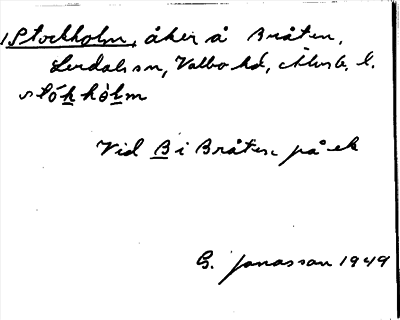 1 Stockholm, åker å Bråten,
Lerdals sn, Valbo hd, Älvsb. l.
stók hòlm
Vid B i Bråten på ek
G. Jonasson 1949